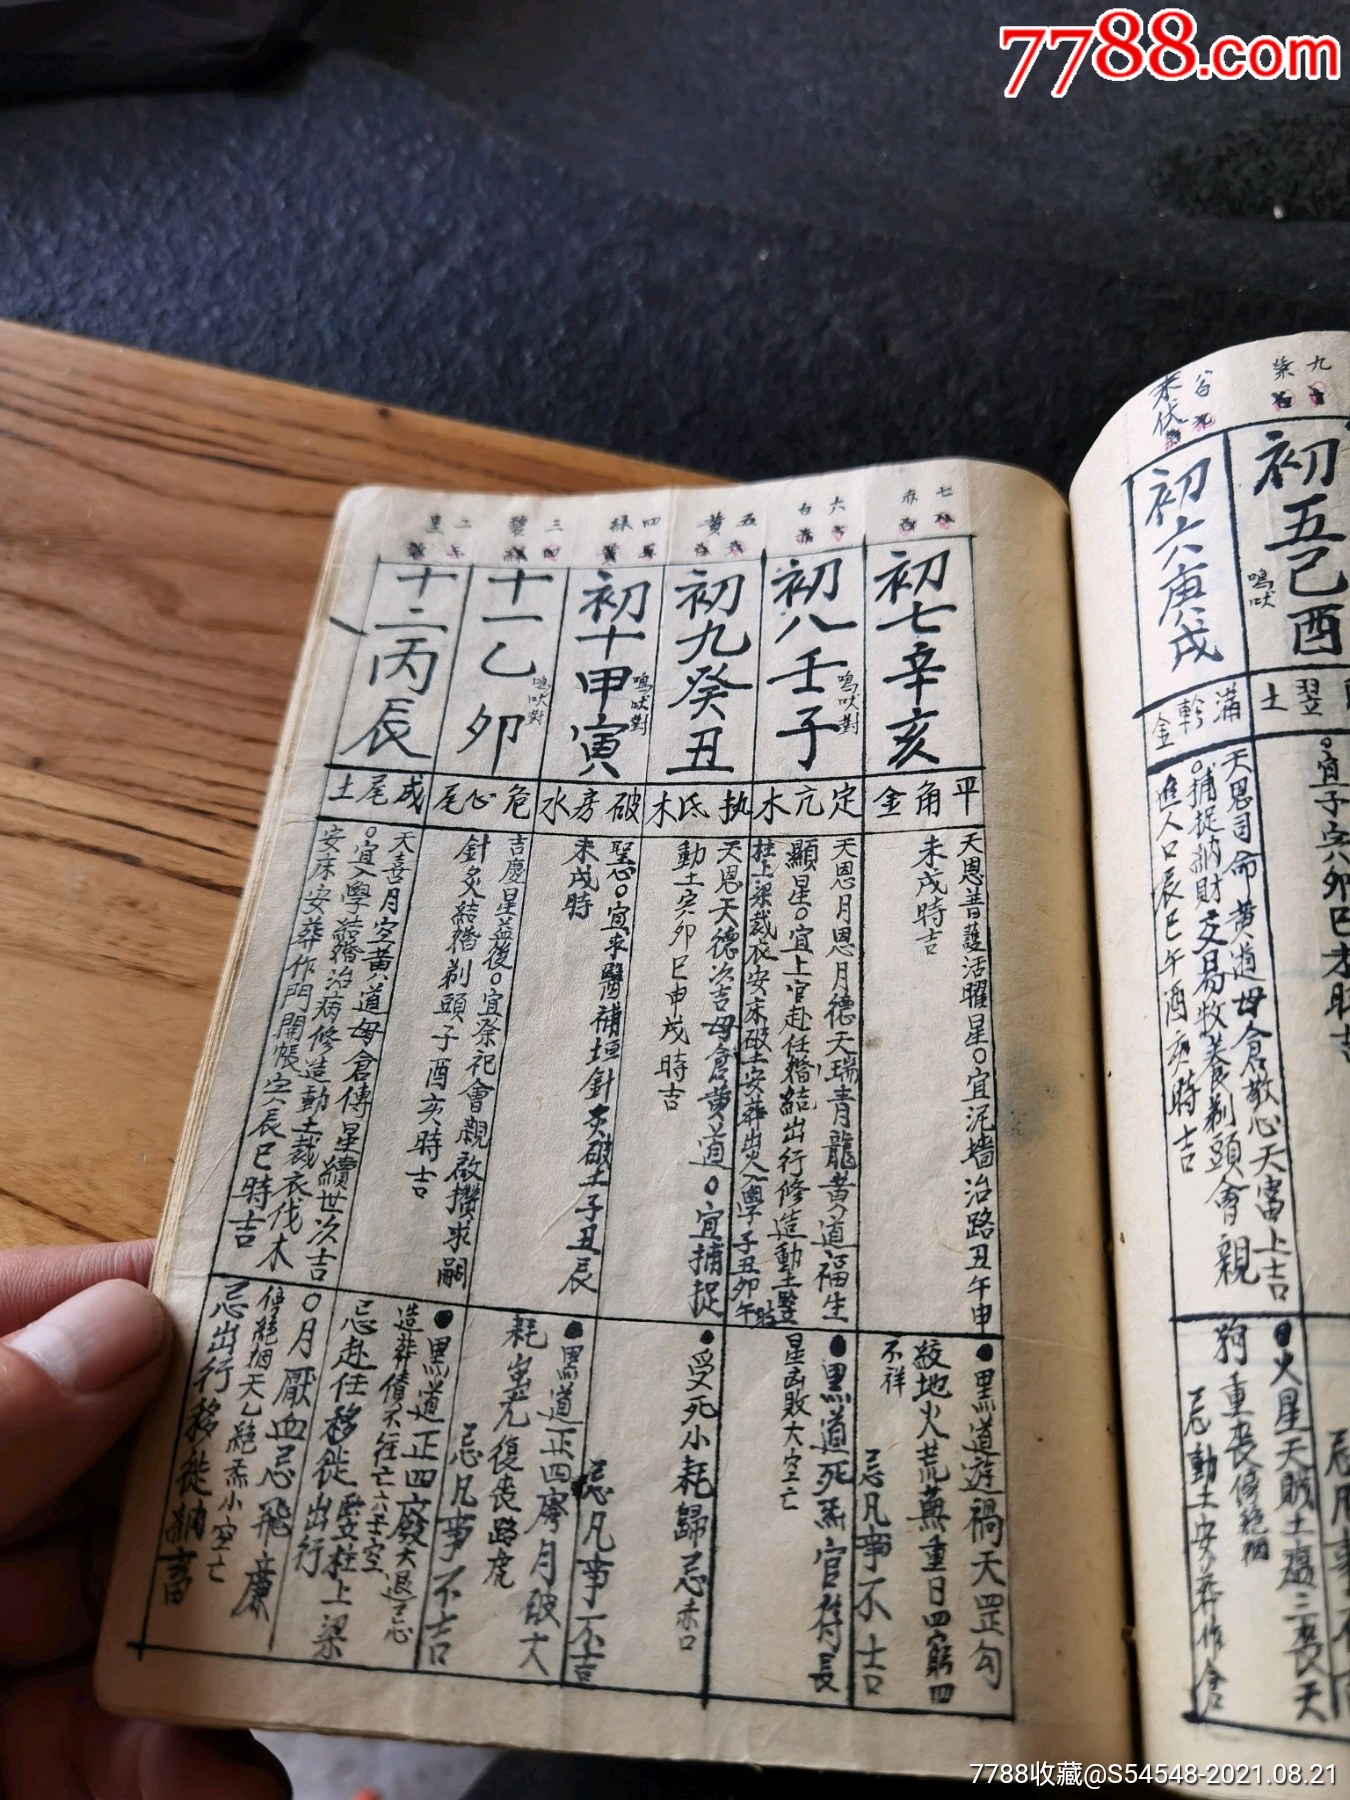 7788.com
九
紫
八白
未伏
初五己酉
鳴吠
土翌
宜子寅卯巳未時
初六庚戌
滿軫金
天恩司命黄道母倉敬心天富上吉
○捕捉納財交易牧養剃頭會親
進人口辰巳午酒亥時吉
●火星天賊土瘟三喪天
狗重喪傍絶烟
忌動土安葬作倉
七赤
六白
五黄
四緑
三碧
二黑
初七辛亥
平角金
天恩普護活曜星○宜泥墻治路丑午申
未戌時吉
●黑道遊禍天罡勾
絞地火荒蕪重日四窮四
不祥
忌凡事不吉
初八壬子
鳴吠對
定亢木
天恩月恩月德天瑞青龍黄道福生
顯星○宜上官赴任婚結出行修造動土竪
柱上梁裁衣安床破土安葬焚入學子丑卯午時
●黑道死炁官符長
星凶敗大空亡
初九癸丑
执氐木
天恩天德次吉母倉黄道○宜捕捉
動土寅卯巳申戌時吉
●受死小耗歸忌赤口
初十甲寅
鳴吠對
破房水
聖心○宜求醫補垣針灸破土子丑辰
未戌時
忌凡事不吉
●黑道正四廢月破大
耗
復喪路虎
忌凡事不吉
十一乙卯
鳴吠對
危心尾
吉慶星益後○宜祭祀會親啟攢求嗣
針灸結婚剃頭子酉亥時吉
●黑道正四廢大退忌
造葬債不往亡六壬空
忌赴任移徙竪柱上梁
出行
十二丙辰
成尾土
天喜月空黄道母倉傳星續世次吉
○宜入學結婚治病修造動土裁衣伐木
安床安葬作門開帳寅辰巳時吉
○月厭血忌飛廉
傍絶烟天乙絶炁小空亡
忌出行移徙納畜
7788收藏@S54548-2021.08.21